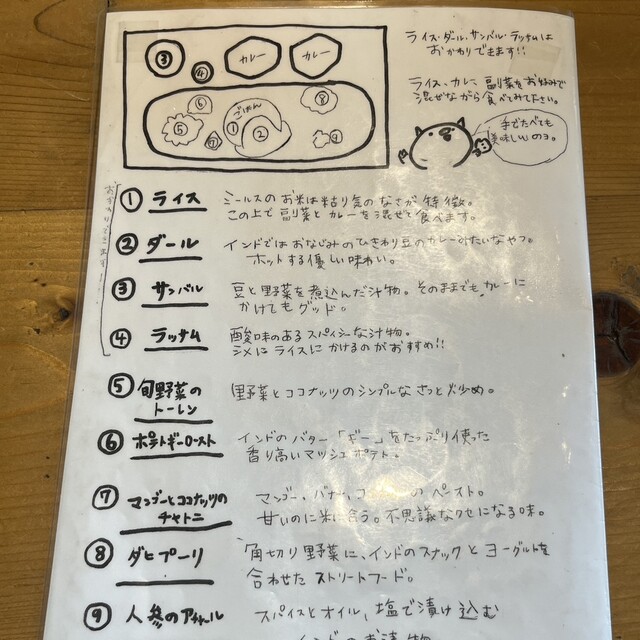 ③
④
カレー
カレー
⑥
ごはん
⑧
⑤
⑦
①
②
⑨
ライス・ダール・サンバル・ラッサムは
おかわりできます!!
ライス、カレー、副菜をお好みで
混ぜながら食べてみて下さい。
手でたべても
美味しいのヨ。
おかわりできます
① ライス
ミールスのお米は粘り気のなさが特徴。
この上で副菜とカレーを混ぜて食べます。
② ダール
インドではおなじみのひきわり豆のカレーみたいなやつ。
ホットする優しい味わい。
③ サンバル
豆と野菜を煮込んだ汁物。そのままでもカレーに
かけてもグッド。
④ ラッサム
酸味のあるスパイシーな汁物。
シメにライスにかけるのがおすすめ!!
⑤ 旬野菜の
トーレン
野菜とココナッツのシンプルなさっと炒め。
⑥ ポテトギーロースト
インドのバター「ギー」をたっぷり使った
香り高いマッシュポテト。
⑦ マンゴーとココナッツの
チャトニ
マンゴー、バナナ、コ のペースト。
甘いのに米に合う。不思議なクセになる味。
⑧ ダヒプーリ
角切り野菜に、インドのスナックとヨーグルトを
合わせたストリートフード。
⑨ 人参のアチャール
スパイスとオイル、塩で漬け込む
インドのお漬物